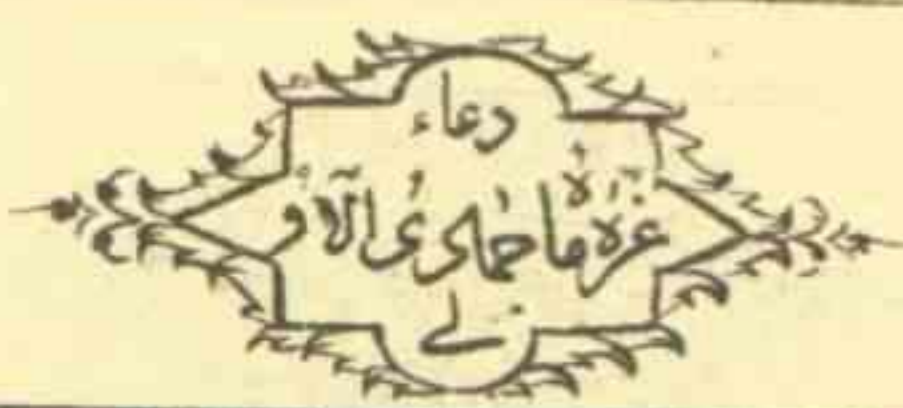 دعاء
غرة ماجمادى الاو
لى